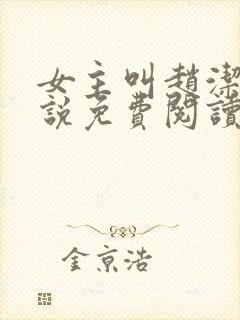 女主叫趙潔
說免費閱讀
金京浩